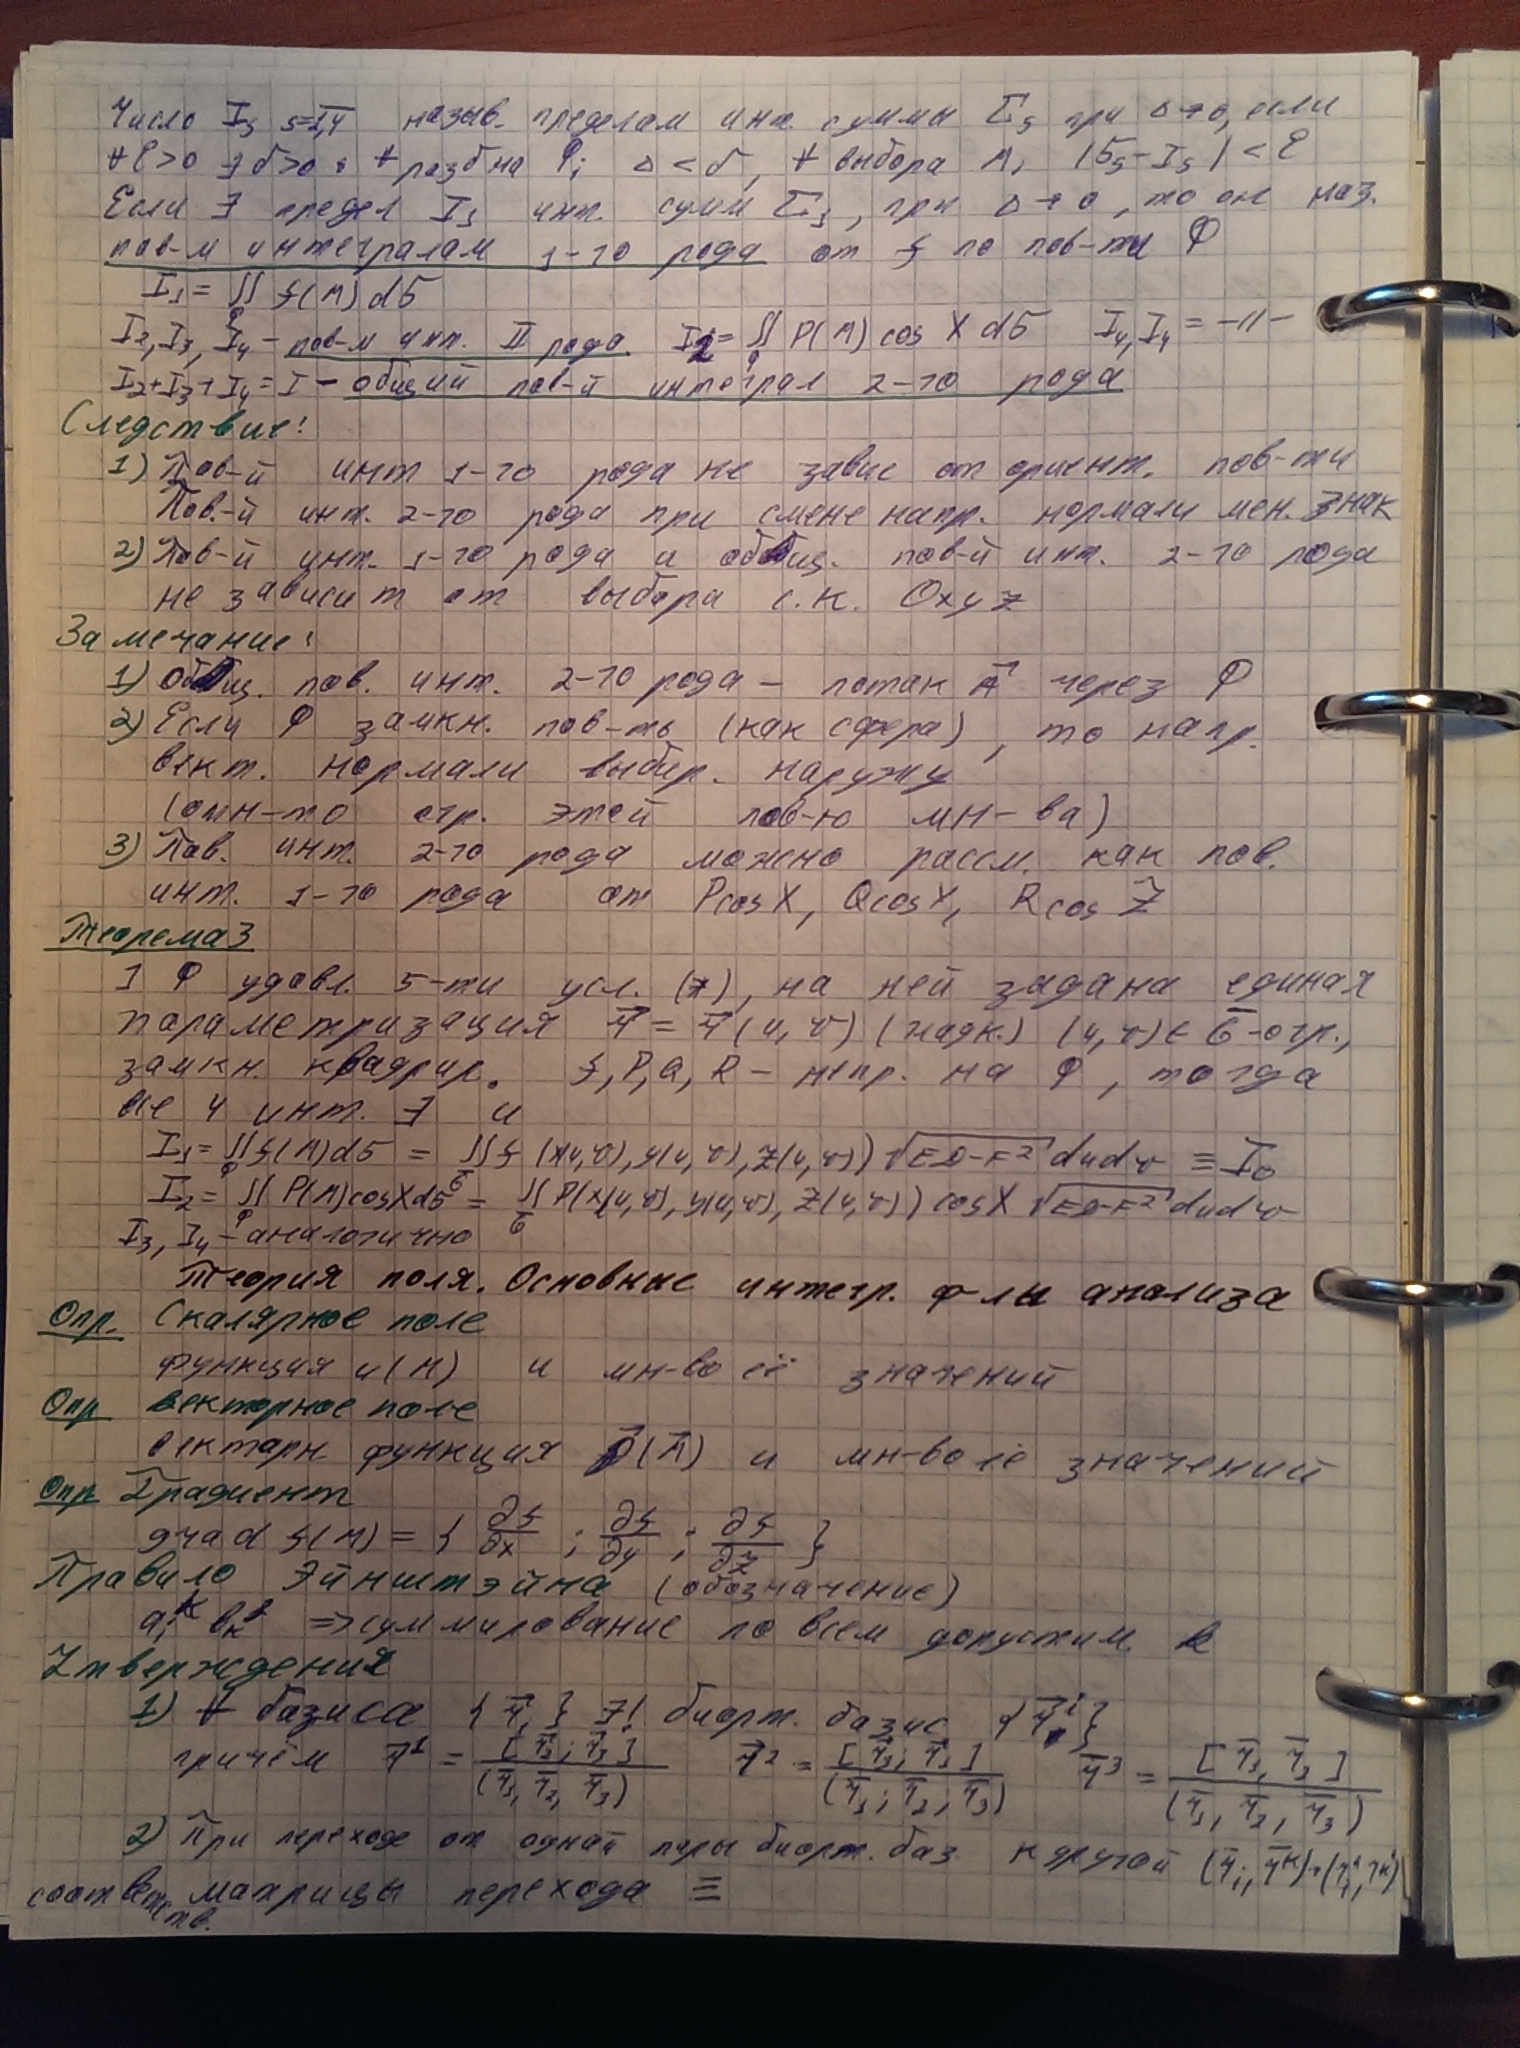 Число I_s s=1,4 назыв. пределом инт. суммы Σ_s при Δ→0, если
∀ε>0 ∃δ>0 : ∀ разб на Φ_i Δ<δ, ∀ выбора M_i |Σ_s-I_s|<ε
Если ∃ предел I_s инт. сумм Σ_s, при Δ→0, то он наз.
пов-м интегралом 1-го рода от f по пов-ти Φ
I_1 = ∬_Φ f(M)dσ
I_2, I_3, I_4 - пов-м инт. II рода. I_2 = ∬_Φ P(M) cos X dσ I_4, I_4 = -11-
I_2+I_3+I_4 = I - общий пов-й интеграл 2-го рода
Следствие:
1) Пов-й инт 1-го рода не завис от ориент. пов-ти
Пов.-й инт. 2-го рода при смене напр. нормали мен. знак
2) Пов-й инт. 1-го рода и общ. пов-й инт. 2-го рода
не зависит от выбора с.к. Oxyz
Замечание:
1) Общ. пов. инт. 2-го рода - поток A⃗ через Φ
2) Если Φ замкн. пов-ть (как сфера), то напр.
вект. нормали выбир. наружу
(отн-но огр. этой пов-ю мн-ва)
3) Пов. инт. 2-го рода можно рассм. как пов.
инт. 1-го рода от P cos X, Q cos Y, R cos Z
Теорема 3
] Φ удовл. 5-ти усл. (*), на ней задана единая
параметризация r⃗ = r⃗(u,v) (гладк.) (u,v)∈G̅-огр.,
замкн. квадрир. f, P, Q, R - непр. на Φ, тогда
все 4 инт. ∃ и
I_1 = ∬_Φ f(M)dσ = ∬_G̅ f(x(u,v), y(u,v), z(u,v)) √(EG-F²) dudv ≡ I_0
I_2 = ∬_Φ P(M)cosXdσ = ∬_G̅ P(x(u,v), y(u,v), z(u,v)) cosX √(EG-F²) dudv
I_3, I_4 - аналогично
Теория поля. Основные интегр. ф-лы анализа
Опр. Скалярное поле
функция u(M) и мн-во её значений
Опр векторное поле
векторн функция p⃗(M) и мн-во её значений
Опр Градиент
grad f(M) = { ∂f/∂x ; ∂f/∂y ; ∂f/∂z }
Правило Эйнштэйна (обозначение)
a_i^k b_k^j ⇒ суммирование по всем допустим. k
Утверждения
1) ∀ базиса {r⃗_i} ∃! биорт. базис {r⃗^i}
причём r⃗^1 = [r⃗_2; r⃗_3]/(r⃗_1, r⃗_2, r⃗_3) r⃗^2 = [r⃗_3; r⃗_1]/(r⃗_1; r⃗_2; r⃗_3) r⃗^3 = [r⃗_1, r⃗_2]/(r⃗_1, r⃗_2, r⃗_3)
2) При переходе от одной пары биорт. баз к другой (r⃗_i, r⃗^k)→(r_i', r^k')
соответств. матрицы перехода ≡